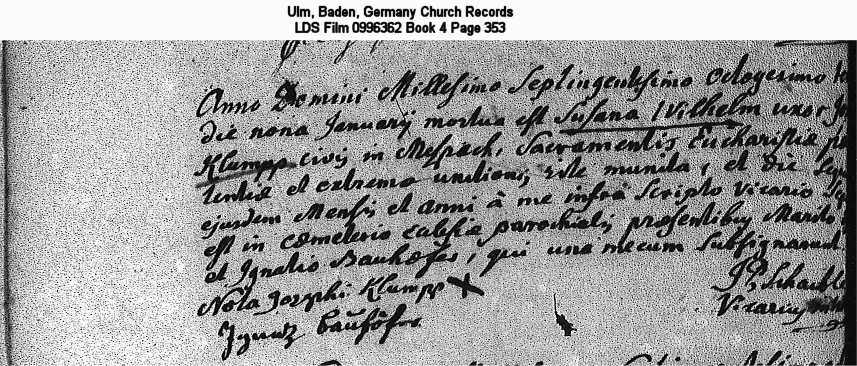 Ulm, Baden, Germany Church Records
LDS Film 0996362 Book 4 Page 353
Anno Domini Millesimo Septingentesimo octogesimo
die nona Januarij mortua est Susana Wilhelm uxor
Klumpp civis in Mespach, Sacramentis Eucharistiæ
tentiæ et extremæ unctionis rite munita, et die
ejusdem Mensis et anni à me infra Scripto Vicario
est in cœmeterio ecclesiæ parochialis præsentibus Marito
et Ignatio Bauhöfer, qui una mecum subsignarunt
Nota Josephi Klumpp X
Ignatz Bauhöfer